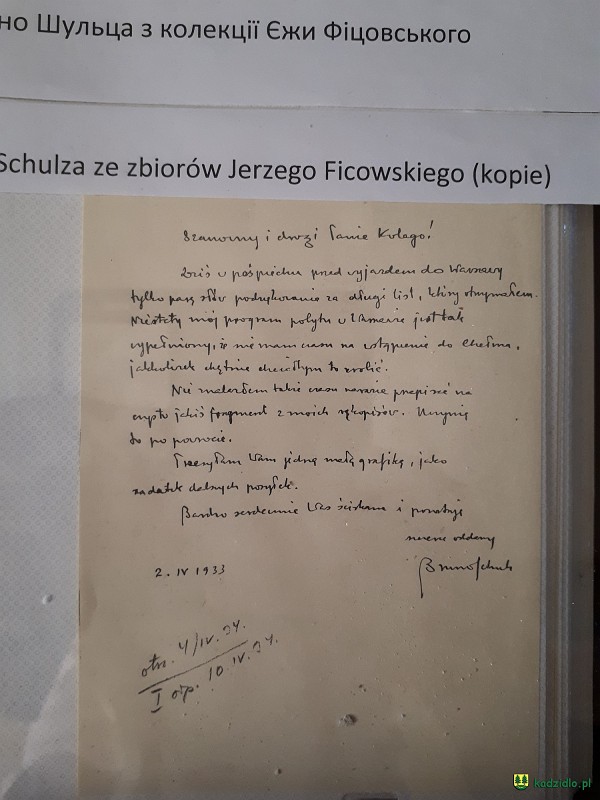 но Шульца з колекції Єжи Фіцовського
Schulza ze zbiorów Jerzego Ficowskiego (kopie)
Szanowny i drogi Panie Kolego!
Dziś w pośpiechu przed wyjazdem do Warszawy
tylko parę słów podziękowania za długi list, który otrzymałem.
Niestety mój program pobytu w Warszawie jest tak
wypełniony, iż nie mam czasu na wstąpienie do Chełma,
jakkolwiek chętnie chciałbym to zrobić.
Nie znalazłem także czasu narazie przepisać na
czysto jakiś fragment z moich rękopisów. Uczynię
to po powrocie.
Przesyłam Wam jedną małą grafikę, jako
zadatek dalszych posyłek.
Bardzo serdecznie Was ściskam i pozostaję
szczerze oddany
Bruno Schulz
2. IV 1933
otrz. 4/IV. 34.
I odp. 10. IV. 34.
kadzidlo.pl